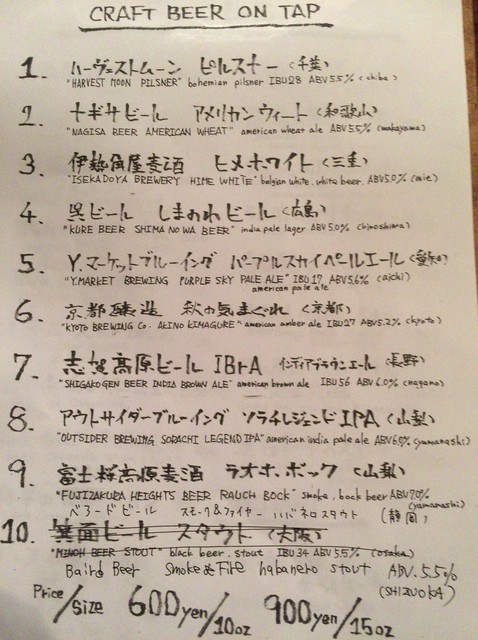 CRAFT BEER ON TAP
1. ハーヴェストムーン ピルスナー (千葉)
"HARVEST MOON PILSNER" bohemian pilsner IBU28 ABV5.5% (chiba)
2. ナギサビール アメリカンウィート (和歌山)
"NAGISA BEER AMERICAN WHEAT" american wheat ale ABV5.5% (wakayama)
3. 伊勢角屋麦酒 ヒメホワイト (三重)
"ISEKADOYA BREWERY HIME WHITE" belgian white. white beer. ABV5.0% (mie)
4. 呉ビール しまのわビール (広島)
"KURE BEER SHIMA NO WA BEER" india pale lager ABV5.0% (hiroshima)
5. Y.マーケットブルーイング パープルスカイペールエール (愛知)
"Y.MARKET BREWING PURPLE SKY PALE ALE" IBU17 ABV5.6% (aichi)
american pale ale
6. 京都醸造 秋の気まぐれ (京都)
"KYOTO BREWING Co. AKINO KIMAGURE" american amber ale IBU27 ABV5.2% (kyoto)
7. 志賀高原ビール IBrA インディアブラウンエール (長野)
"SHIGAKOGEN BEER INDIA BROWN ALE" american brown ale IBU56 ABV6.0% (nagano)
8. アウトサイダーブルーイング ソラチレジェンドIPA (山梨)
"OUTSIDER BREWING SORACHI LEGEND IPA" american india pale ale ABV6.5% (yamanashi)
9. 富士桜高原麦酒 ラオホボック (山梨)
"FUJIZAKURA HEIGHTS BEER RAUCH BOCK" smoke. bock beer ABV7.0% (yamanashi)
ベアードビール スモーク&ファイヤー ハバネロスタウト (静岡)
10. 箕面ビール スタウト (大阪)
"MINOH BEER STOUT" black beer. stout IBU34 ABV5.5% (osaka)
Baird Beer Smoke & Fire habanero stout ABV. 5.5%
(SHIZUOKA)
Price/size 600yen/10oz 900yen/15oz